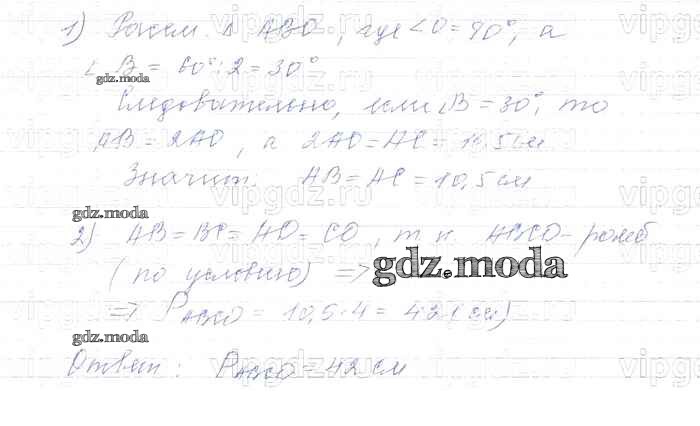 1) Рассм. Δ ABO, где <O = 90°, а
∠B = 60° : 2 = 30°
gdz.moda
Следовательно, если ∠B = 30°, то
AB = 2AO, а 2AO = AC = 10,5 см
Значит. AB = AC = 10,5 см
gdz.moda
2) AB = BC = AD = CD, т.к. ABCD - ромб
(по условию) =>
gdz.moda
=> P ABCD = 10,5 · 4 = 42 (см)
gdz.moda
Ответ: P ABCD = 42 см
vipgdz.ru